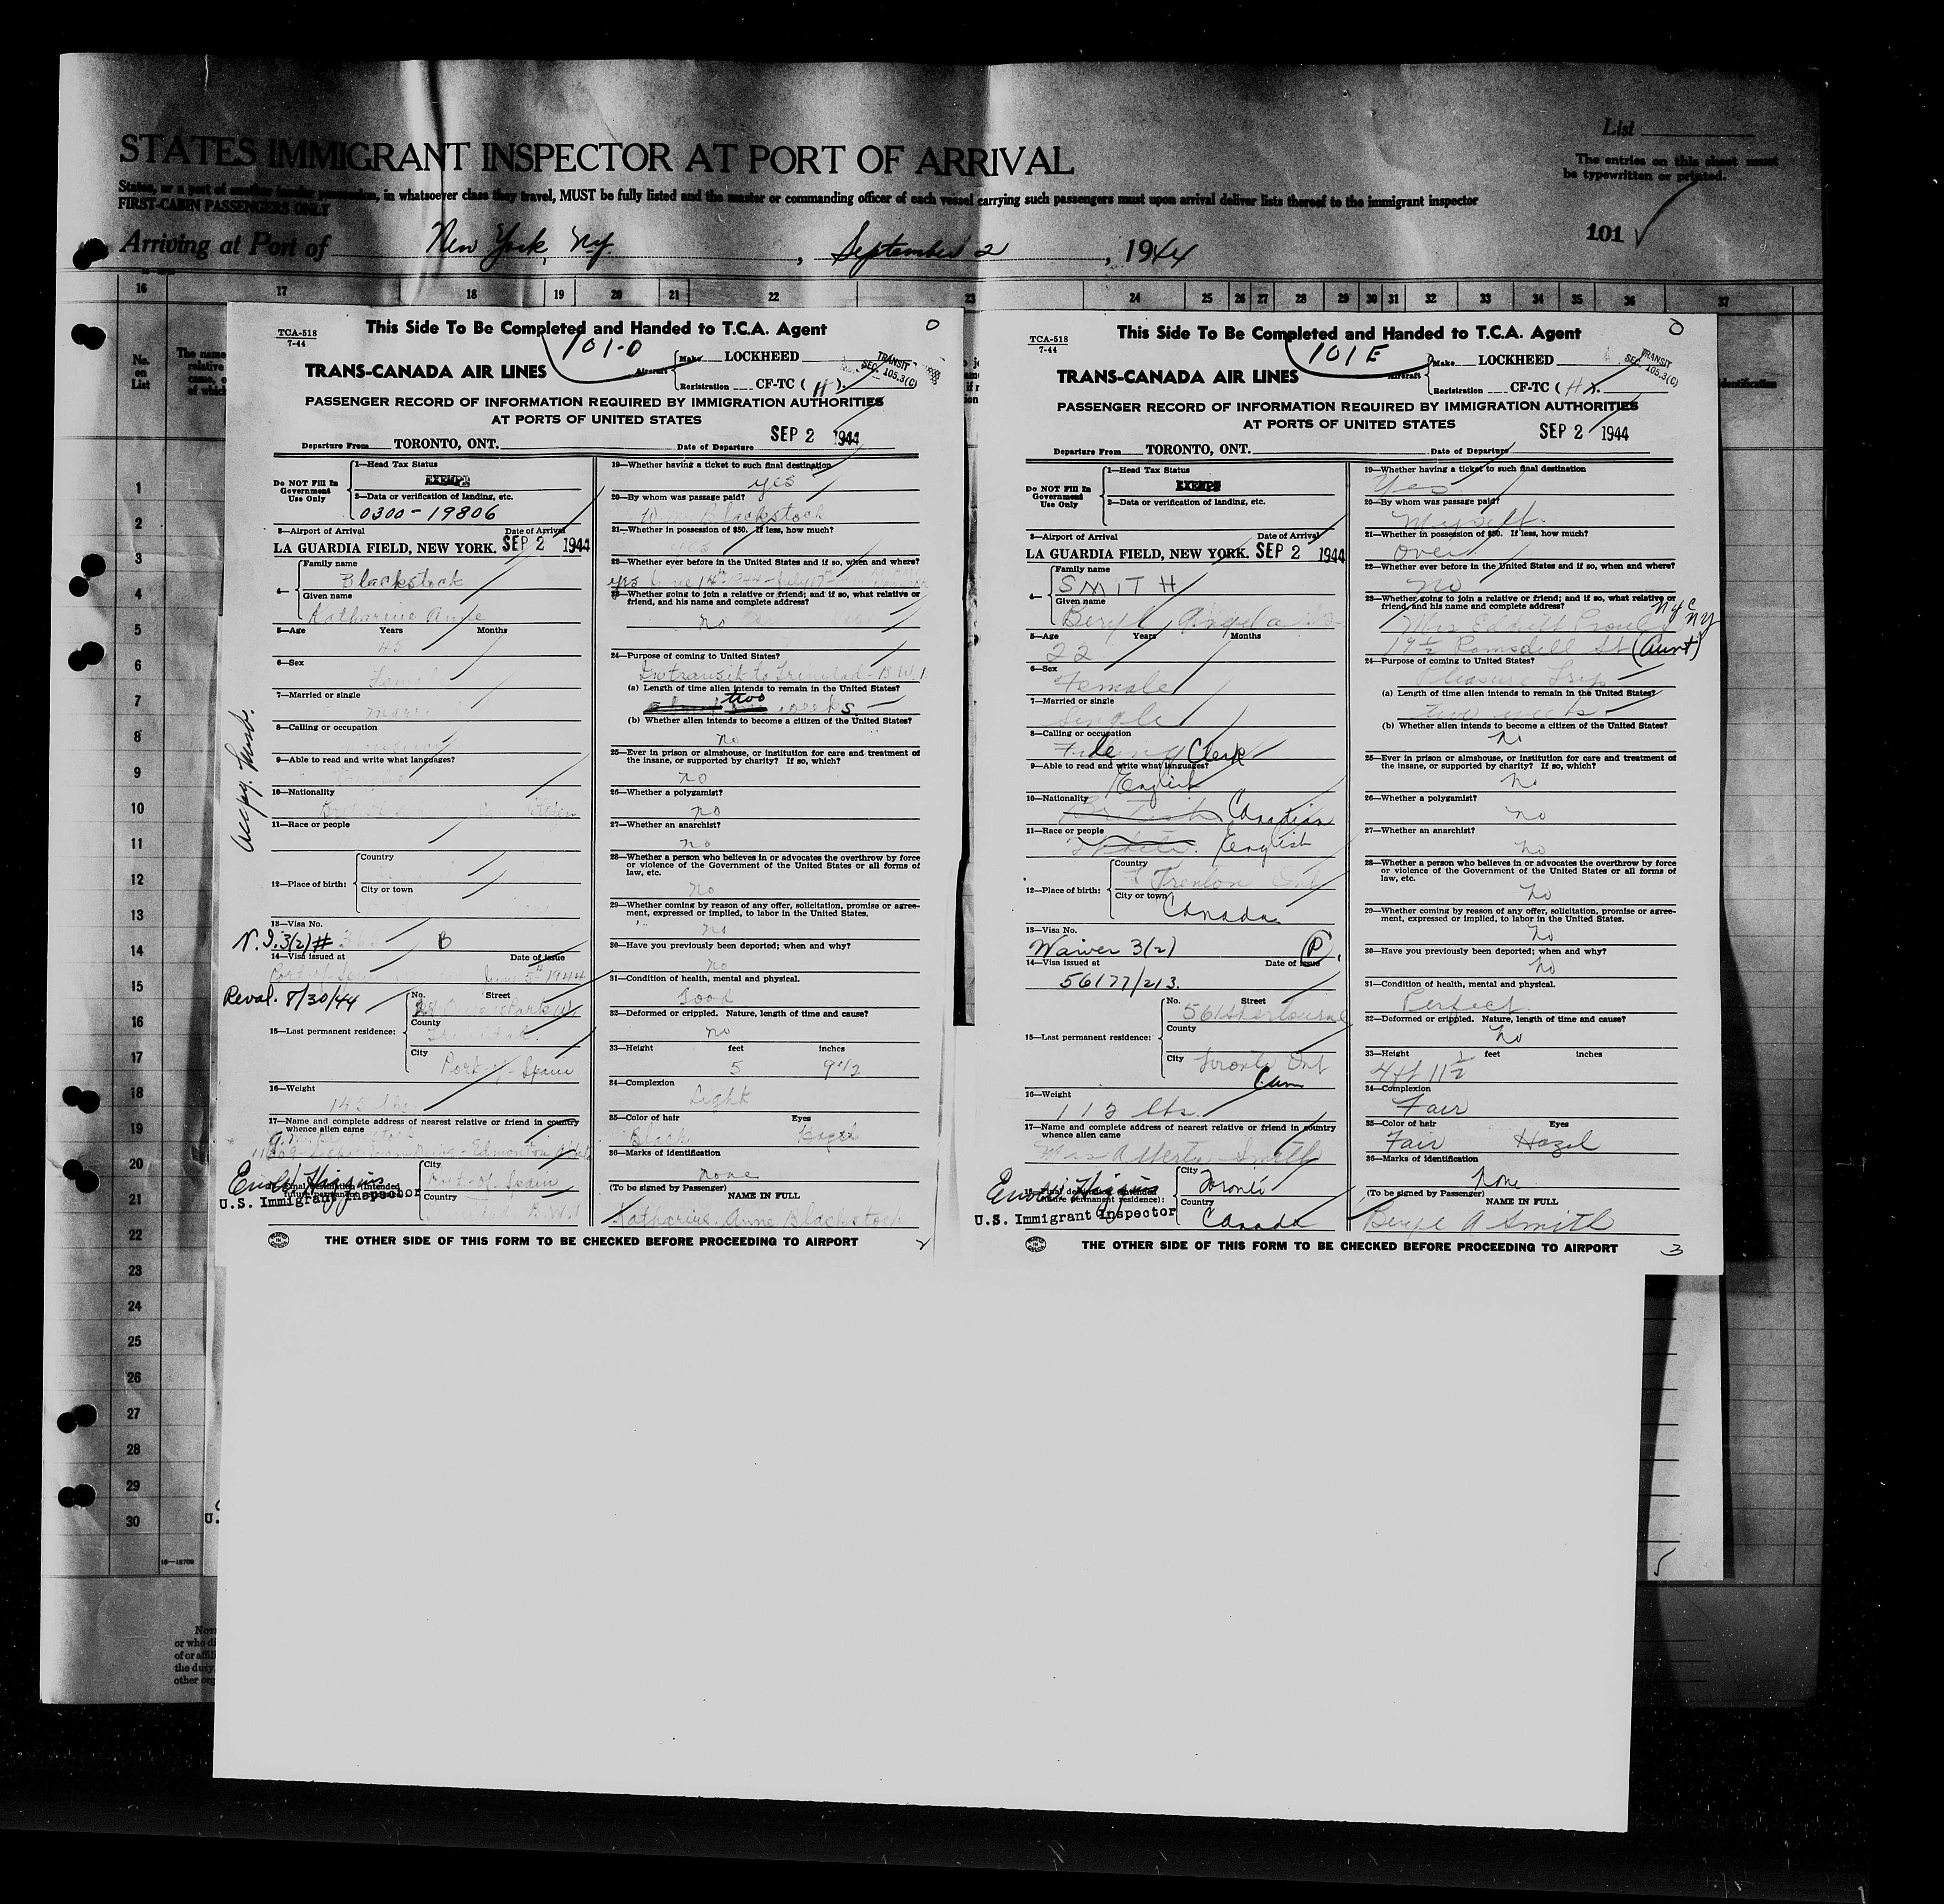 List
STATES IMMIGRANT INSPECTOR AT PORT OF ARRIVAL
The entries on this sheet must
be typewritten or printed.
States, or a port of another insular possession, in whatsoever class they travel, MUST be fully listed and the master or commanding officer of each vessel carrying such passengers must upon arrival deliver lists thereof to the immigrant inspector
FIRST-CABIN PASSENGERS ONLY
101
Arriving at Port of New York, N.Y. , September 2 , 1944
16 17 18 19 20 21 22 23 24 25 26 27 28 29 30 31 32 33 34 35 36 37
No.
on
List
1
2
3
4
5
6
7
8
9
10
11
12
13
14
15
16
17
18
19
20
21
22
23
24
25
26
27
28
29
30
16-18709
TCA-518
7-44
This Side To Be Completed and Handed to T.C.A. Agent
0
101-D
TRANS-CANADA AIR LINES
Aircraft
Make LOCKHEED
Registration CF-TC (H).
TRANSIT
SEC. 105.3(C)
PASSENGER RECORD OF INFORMATION REQUIRED BY IMMIGRATION AUTHORITIES
AT PORTS OF UNITED STATES
SEP 2 1944
Departure From TORONTO, ONT. Date of Departure
Do NOT Fill In
Government
Use Only
1—Head Tax Status
EXEMPT
2—Data or verification of landing, etc.
0300-19806
3—Airport of Arrival Date of Arrival
LA GUARDIA FIELD, NEW YORK. SEP 2 1944
4—
Family name
Blackstock
Given name
Katharine Anne
5—Age Years Months
45
6—Sex
Female
7—Married or single
8—Calling or occupation
9—Able to read and write what languages?
10—Nationality
11—Race or people
Accpy. husb.
12—Place of birth:
Country
City or town
13—Visa No.
N.I. 3(2)# B
14—Visa issued at Date of issue
June 5th 1944
Reval. 8/30/44
15—Last permanent residence:
No. Street
County
City
Port-of-Spain
16—Weight
145 lbs.
17—Name and complete address of nearest relative or friend in country
whence alien came
Edmonton
18—Final destination (intended
future permanent residence):
U.S. Immigrant Inspector
City
Port-of-Spain
Country
B.W.I
19—Whether having a ticket to such final destination
yes
20—By whom was passage paid?
Blackstock
21—Whether in possession of $50. If less, how much?
yes
22—Whether ever before in the United States and if so, when and where?
yes
23—Whether going to join a relative or friend; and if so, what relative or
friend, and his name and complete address?
no
24—Purpose of coming to United States?
In transit to Trinidad - B.W.I.
(a) Length of time alien intends to remain in the United States?
two weeks.
(b) Whether alien intends to become a citizen of the United States?
no
25—Ever in prison or almshouse, or institution for care and treatment of
the insane, or supported by charity? If so, which?
no
26—Whether a polygamist?
no
27—Whether an anarchist?
no
28—Whether a person who believes in or advocates the overthrow by force
or violence of the Government of the United States or all forms of
law, etc.
no
29—Whether coming by reason of any offer, solicitation, promise or agree-
ment, expressed or implied, to labor in the United States.
no
30—Have you previously been deported; when and why?
no
31—Condition of health, mental and physical.
Good
32—Deformed or crippled. Nature, length of time and cause?
no
33—Height feet inches
5 9 1/2
34—Complexion
Light
35—Color of hair Eyes
Black
36—Marks of identification
none
(To be signed by Passenger) NAME IN FULL
Katharine Anne Blackstock
THE OTHER SIDE OF THIS FORM TO BE CHECKED BEFORE PROCEEDING TO AIRPORT
2
TCA-518
7-44
This Side To Be Completed and Handed to T.C.A. Agent
0
101E
TRANS-CANADA AIR LINES
Aircraft
Make LOCKHEED
Registration CF-TC (H).
TRANSIT
SEC. 105.3(C)
PASSENGER RECORD OF INFORMATION REQUIRED BY IMMIGRATION AUTHORITIES
AT PORTS OF UNITED STATES
SEP 2 1944
Departure From TORONTO, ONT. Date of Departure
Do NOT Fill In
Government
Use Only
1—Head Tax Status
EXEMPT
2—Data or verification of landing, etc.
3—Airport of Arrival Date of Arrival
LA GUARDIA FIELD, NEW YORK. SEP 2 1944
4—
Family name
SMITH
Given name
Beryl Angela
5—Age Years Months
22
6—Sex
Female
7—Married or single
Single
8—Calling or occupation
Filing Clerk
9—Able to read and write what languages?
English
10—Nationality
British Canadian
11—Race or people
White. English
12—Place of birth:
Country
Trenton Ont
City or town
Canada
13—Visa No.
Waiver 3(2) P
14—Visa issued at Date of issue
56177/213.
15—Last permanent residence:
No. Street
561 Sherbourne
County
City
Toronto Ont
Can
16—Weight
112 lbs.
17—Name and complete address of nearest relative or friend in country
whence alien came
Mrs Alberta Smith
18—Final destination (intended
future permanent residence):
U.S. Immigrant Inspector
City
Toronto
Country
Canada
19—Whether having a ticket to such final destination
Yes
20—By whom was passage paid?
Myself.
21—Whether in possession of $50. If less, how much?
Over
22—Whether ever before in the United States and if so, when and where?
No
23—Whether going to join a relative or friend; and if so, what relative or
friend, and his name and complete address?
NYC
NY
Mrs
19 1/2 Ramsdell St (Aunt)
24—Purpose of coming to United States?
Pleasure Trip
(a) Length of time alien intends to remain in the United States?
two weeks
(b) Whether alien intends to become a citizen of the United States?
No
25—Ever in prison or almshouse, or institution for care and treatment of
the insane, or supported by charity? If so, which?
No
26—Whether a polygamist?
No
27—Whether an anarchist?
No
28—Whether a person who believes in or advocates the overthrow by force
or violence of the Government of the United States or all forms of
law, etc.
No
29—Whether coming by reason of any offer, solicitation, promise or agree-
ment, expressed or implied, to labor in the United States.
No
30—Have you previously been deported; when and why?
No
31—Condition of health, mental and physical.
Perfect.
32—Deformed or crippled. Nature, length of time and cause?
No
33—Height feet inches
4ft 11 1/2
34—Complexion
Fair
35—Color of hair Eyes
Fair Hazel
36—Marks of identification
None
(To be signed by Passenger) NAME IN FULL
Beryl A Smith
THE OTHER SIDE OF THIS FORM TO BE CHECKED BEFORE PROCEEDING TO AIRPORT
3